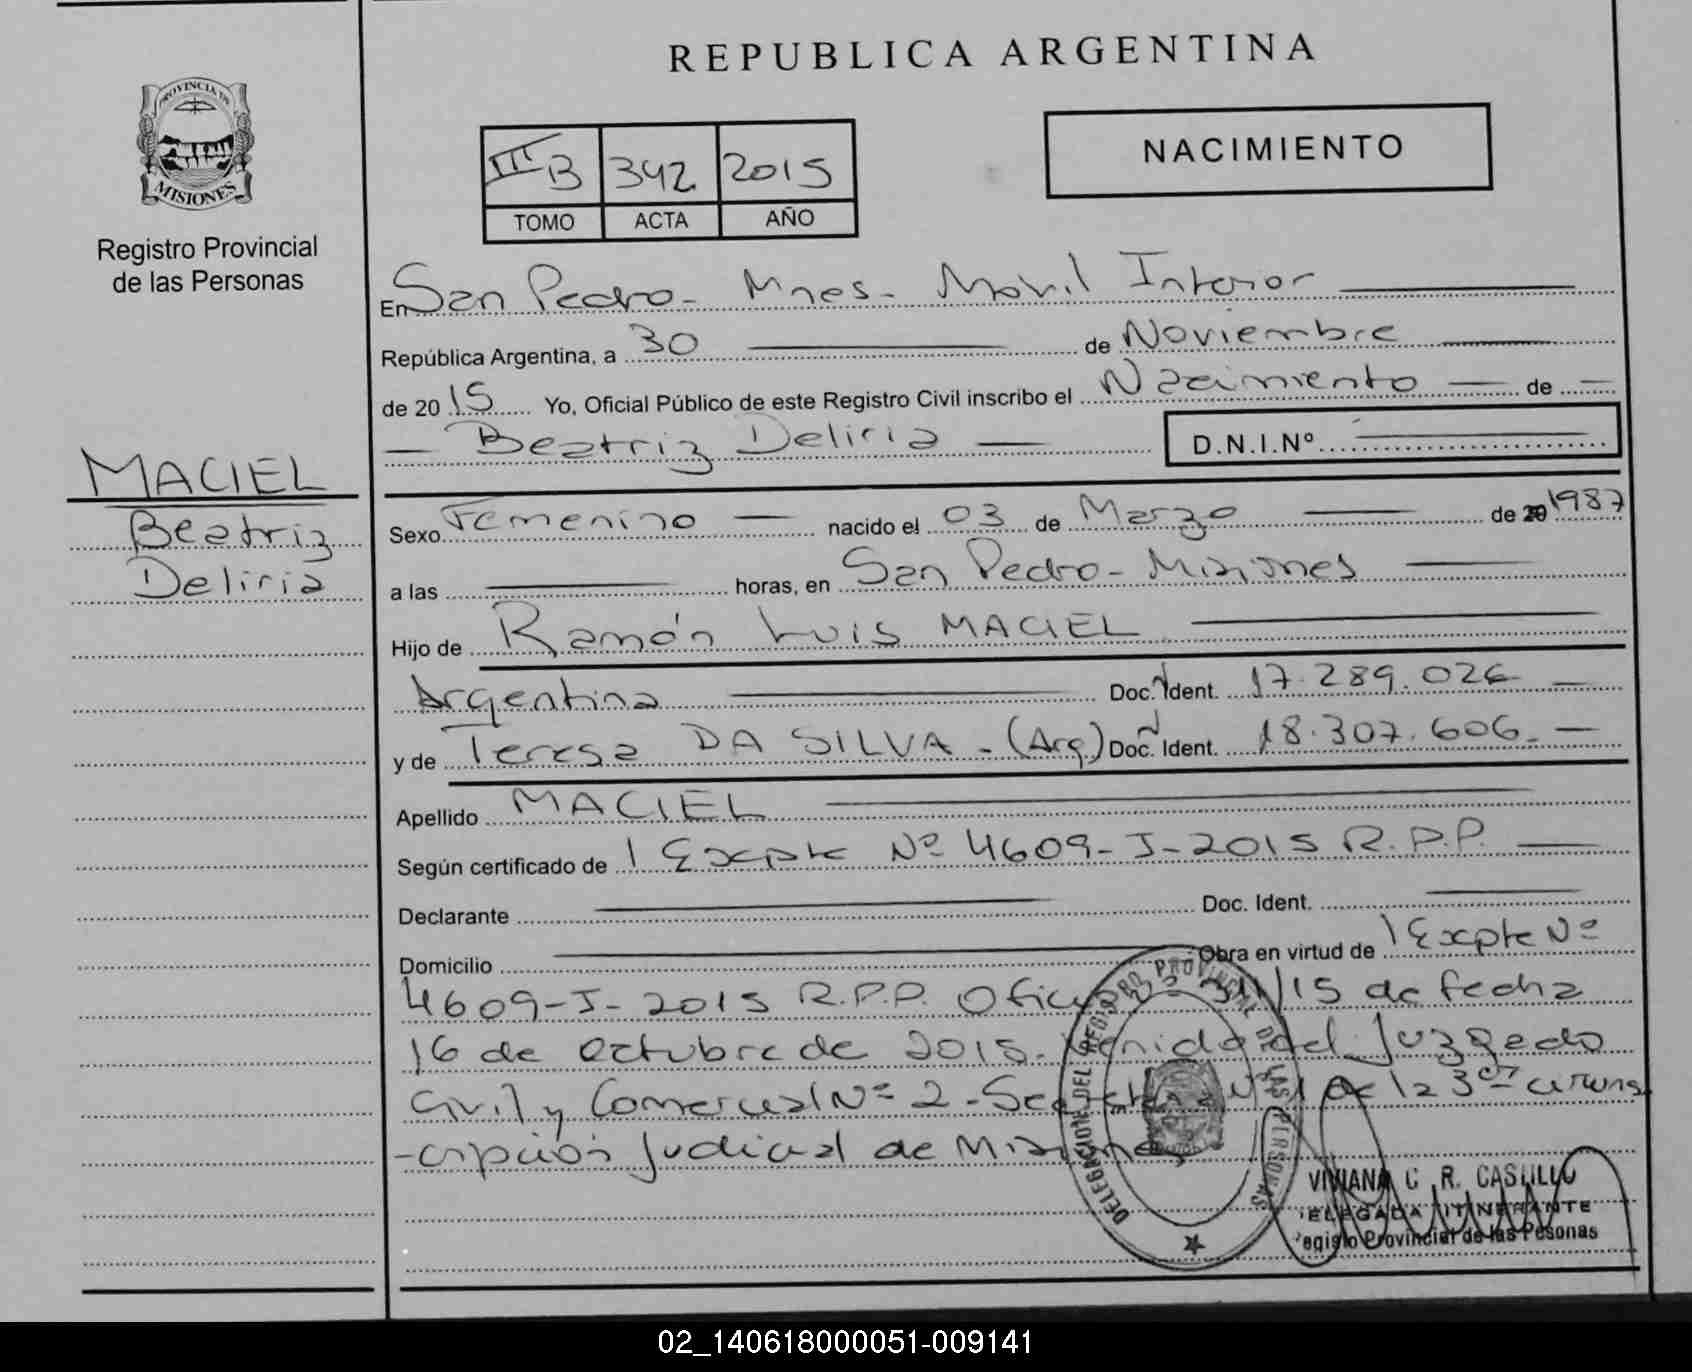 REPUBLICA ARGENTINA
PROVINCIA DE
MISIONES
Registro Provincial
de las Personas
NACIMIENTO
III B 342 2015
TOMO ACTA AÑO
En San Pedro - Mnes - Móvil Interior
República Argentina, a 30 de Noviembre
de 2015 Yo, Oficial Público de este Registro Civil inscribo el Nacimiento de
Beatriz Deliria D.N.I.Nº
MACIEL
Beatriz
Deliria
Sexo Femenino nacido el 03 de Marzo de 1987
a las horas, en San Pedro - Misiones
Hijo de Ramón Luis MACIEL
Argentina Doc. Ident. 17.289.026
y de Teresa DA SILVA - (Arg) Doc. Ident. 18.307.606
Apellido MACIEL
Según certificado de Expte Nº 4609-J-2015 R.P.P.
Declarante Doc. Ident.
Domicilio Obra en virtud de Expte Nº
4609-J-2015 R.P.P. /15 de fecha
16 de octubre de 2015. del Juzgado
Civil y Comercial Nº 2 - de la 3er circuns
-cripción Judicial de Misiones
DELEGADO DEL REGISTRO PROVINCIAL DE LAS PERSONAS
VIVIANA C. R. CASTILLO
ELEGADA ITINERANTE
egisto Provincial de las Pesonas
02_140618000051-009141